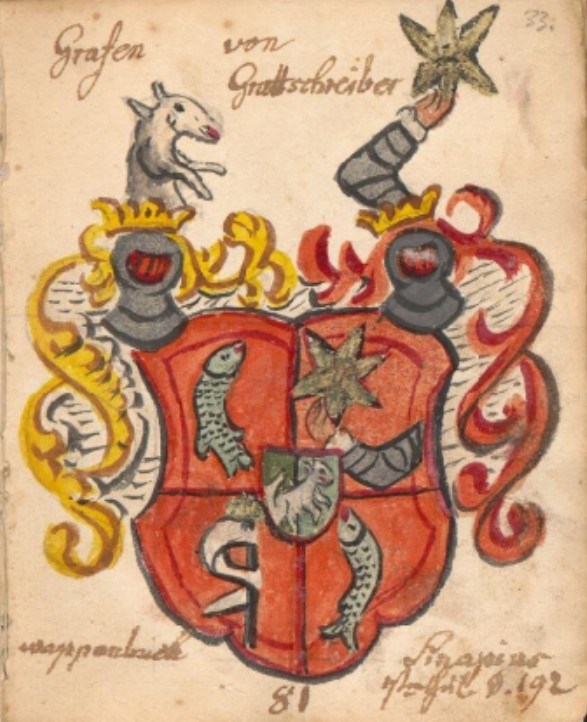 33.
Grafen von
Grattschreiber
wappenbuch
Sinapius
p. 192
81